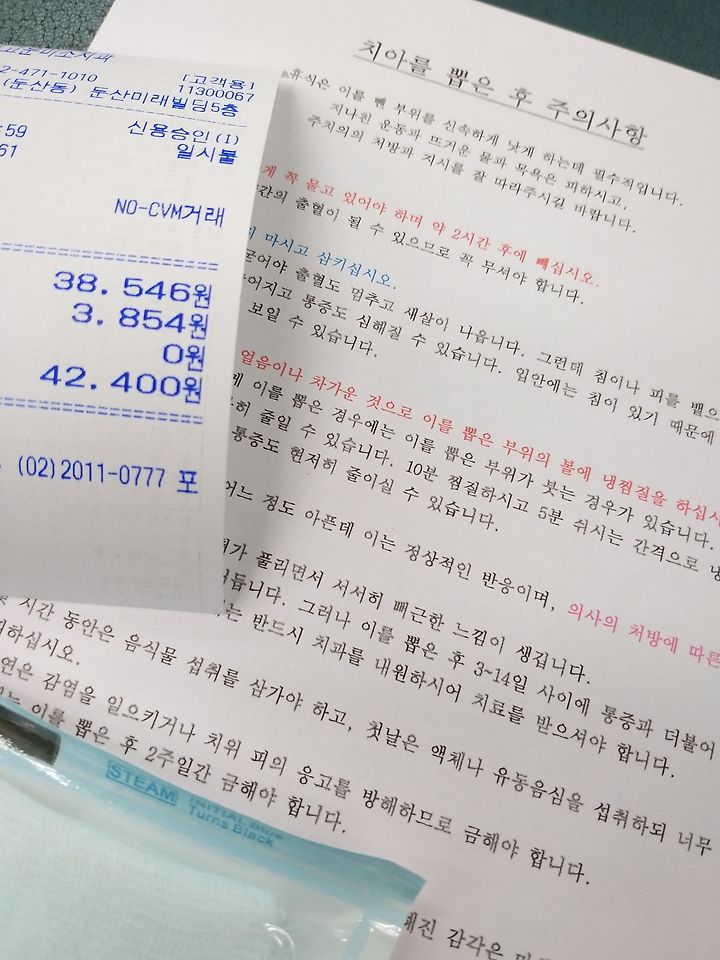 2-471-1010 [고객용]
(둔산동) 둔산미래빌딩5층 11300067
:59 신용승인(I)
61 일시불
NO-CVM거래
38.546원
3.854원
0원
42.400원
(02)2011-0777 포
치아를 뽑은 후 주의사항
휴식은 이를 뺀 부위를 신속하게 낫게 하는데 필수적입니다.
지나친 운동과 뜨거운 물과 목욕은 피하시고,
주치의의 처방과 지시를 잘 따라주시길 바랍니다.
게 꼭 물고 있어야 하며 약 2시간 후에 빼십시오.
간의 출혈이 될 수 있으므로 꼭 무셔야 합니다.
마시고 삼키십시오.
어야 출혈도 멈추고 새살이 나옵니다. 그런데 침이나 피를 뱉으
어지고 통증도 심해질 수 있습니다. 입안에는 침이 있기 때문에
보일 수 있습니다.
얼음이나 차가운 것으로 이를 뽑은 부위의 볼에 냉찜질을 하십시
게 이를 뽑은 경우에는 이를 뽑은 부위가 붓는 경우가 있습니다.
히 줄일 수 있습니다. 10분 찜질하시고 5분 쉬시는 간격으로 냉
통증도 현저히 줄이실 수 있습니다.
어느 정도 아픈데 이는 정상적인 반응이며, 의사의 처방에 따른
가 풀리면서 서서히 뻐근한 느낌이 생깁니다.
듭니다. 그러나 이를 뽑은 후 3~14일 사이에 통증과 더불어
는 반드시 치과를 내원하시어 치료를 받으셔야 합니다.
시간 동안은 음식물 섭취를 삼가야 하고, 첫날은 액체나 유동음식을 섭취하되 너무
하십시오.
연은 감염을 일으키거나 치위 피의 응고를 방해하므로 금해야 합니다.
는 이를 뽑은 후 2주일간 금해야 합니다.
해진 감각은
STEAM INITIAL Blue
Turns Black